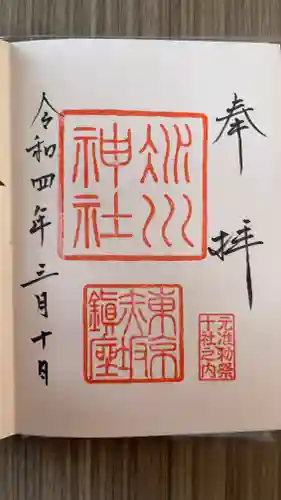 奉拝
氷川神社
東京赤坂鎮座
元准勅祭
十社之内
令和四年三月十日